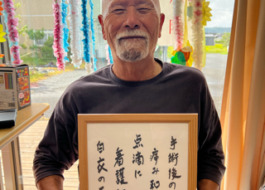 手術後の
痛み和
点滴に
看護
白衣の